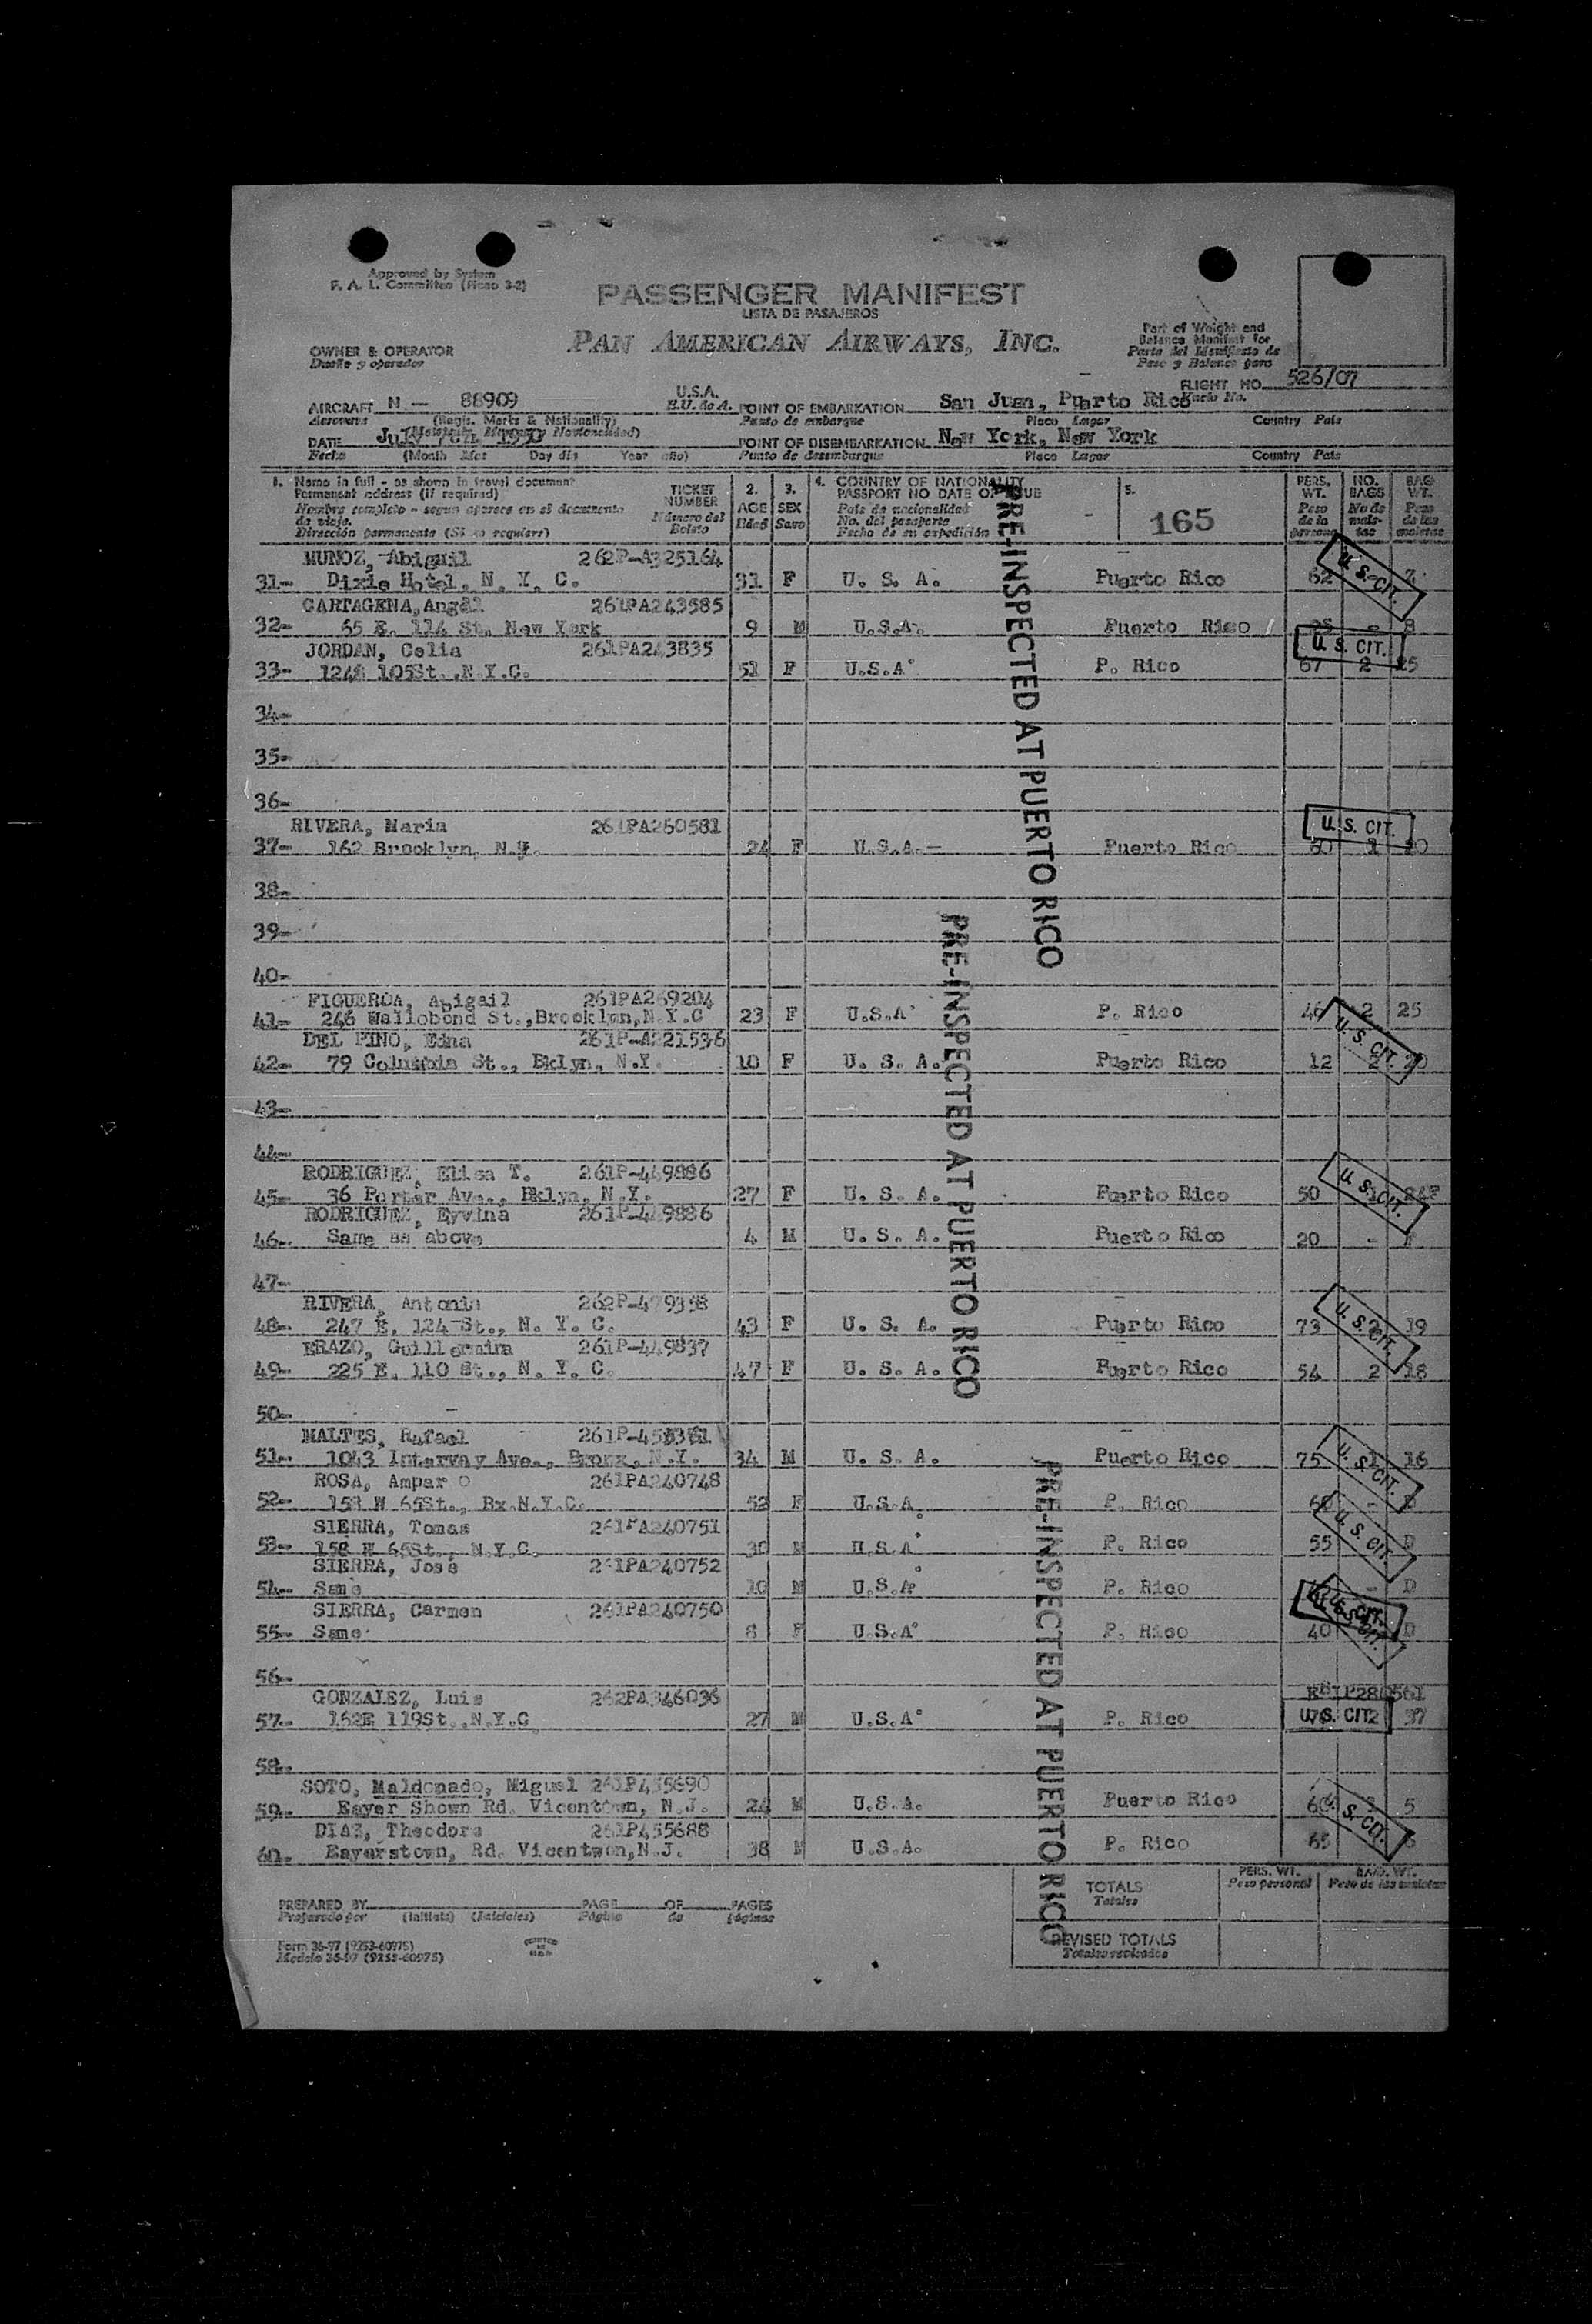 Approved by System
F. A. L. Committee (Picao 3-2)
PASSENGER MANIFEST
LISTA DE PASAJEROS
PAN AMERICAN AIRWAYS, INC.
Part of Weight and
Balance Manifest for
Parte del Manifiesto de
Peso y Balance para
OWNER & OPERATOR
Dueño y operador
FLIGHT NO. 526/07
Vuelo No.
AIRCRAFT N - 88909 U.S.A.
Aeronave (Regis. Marks & Nationality) E.U. de A.
POINT OF EMBARKATION San Juan, Puerto Rico
Punto de embarque Place Lugar Country País
DATE July
Fecha (Month Mes Day día Year año)
POINT OF DISEMBARKATION New York, New York
Punto de desembarque Place Lugar Country País
1. Name in full - as shown in travel document
Permanent address (if required)
Nombre completo - segun aparece en el documento
de viaje.
Dirección permanente (Si se requiere)
TICKET
NUMBER
Número del
Boleto
2.
AGE
Edad
3.
SEX
Sexo
4. COUNTRY OF NATIONALITY
PASSPORT NO DATE OF ISSUE
País de nacionalidad
No. del pasaporte
Fecha de su expedición
5.
165
PERS.
WT.
Peso
de la
persona
NO.
BAGS
No de
male-
tas
BAG
WT.
Peso
de las
maletas
MUNOZ, Abigail 262P-A325164
31- Dixie Hotel, N. Y. C. 31 F U. S. A. Puerto Rico 62 7
CARTAGENA, Angel 261PA243585
32- 65 E. 114 St. New York 9 M U.S.A. Puerto Rico - 8
JORDAN, Celia 261PA243835
33- 1248 105St. .N.Y.C. 51 F U.S.A. P. Rico 67 2 25
34-
35-
36-
RIVERA, Maria 261PA260581
37- 162 Brooklyn, N.Y. 24 F U.S.A.- Puerto Rico 60 1 20
38-
39-
40-
FIGUEROA, Abigail 261PA269204
41- 246 Wallobond St.,Brooklyn,N.Y.C 23 F U.S.A. P. Rico 46 2 25
DEL PINO, Edna 261P-A221536
42- 79 Columbia St., Bklyn, N.Y. 10 F U. S. A. Puerto Rico 12 2 20
43-
44-
RODRIGUEZ, Elisa T. 261P-449886
45- 36 Porter Ave., Bklyn, N.Y. 27 F U. S. A. Puerto Rico 50 1 24F
RODRIGUEZ, Eyvina 261P-449886
46- Same as above 4 M U. S. A. Puerto Rico 20 - F
47-
RIVERA, Antonia 262P-479358
48- 247 E. 124 St., N. Y. C. 43 F U. S. A. Puerto Rico 73 2 19
ERAZO, Guillermira 261P-449837
49- 225 E. 110 St., N. Y. C. 47 F U. S. A. Puerto Rico 54 2 18
50-
MALTES, Rafael
51- 1043 Intervay Ave., Bronx, N.Y. 34 M U. S. A. Puerto Rico 75 1 16
ROSA, Ampar o 261PA240748
52- 158 W 65St., Bx.N.Y.C. 52 F U.S.A. P. Rico 60 - D
SIERRA, Tomas 261PA240751
53- 158 W 65St., N.Y.C. M U.S.A. P. Rico 55 D
SIERRA, Jose 261PA240752
54- Same 10 M U.S.A. P. Rico - D
SIERRA, Carmen 261PA240750
55- Same 8 F U.S.A. P. Rico 40 D
56-
GONZALEZ, Luis 262PA346036
57- 162E 119St..N.Y.C 27 M U.S.A. P. Rico 2 37
58-
SOTO, Maldonado, Miguel 261P455690
59- Eayer Shown Rd. Vicentown, N.J. 24 M U.S.A. Puerto Rico 60 5
DIAZ, Theodore 261P455688
60- Eayerstown, Rd. Vicentwon,N.J. 38 M U.S.A. P. Rico 65
PRE-INSPECTED AT PUERTO RICO
PRE-INSPECTED AT PUERTO RICO
PRE-INSPECTED AT PUERTO RICO
U. S. CIT.
U. S. CIT.
U. S. CIT.
U. S. CIT.
U. S. CIT.
U. S. CIT.
U. S. CIT.
U. S. CIT.
U. S. CIT.
U. S. CIT.
U. S. CIT.
PREPARED BY PAGE OF PAGES
Preparado por (Initials) (Iniciales) Página de páginas
TOTALS
Totales
PERS. WT.
Peso personal
BAG. WT.
Peso de las maletas
REVISED TOTALS
Totales revisados
Form 36-97 (9253-60975)
Modelo 36-97 (9253-60975)